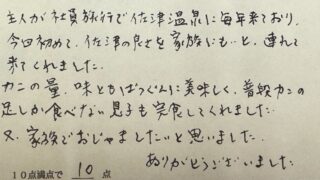 主人が社員旅行で佐津温泉に毎年来ており、
今回初めて、佐津の良さを家族にも…と、連れて
来てくれました。
カニの量、味ともばつぐんに美味しく、普段カニの
足しか食べない息子も完食してくれました。
又、家族でおじゃましたいと思いました。
ありがとうございました
10点満点で 10 点